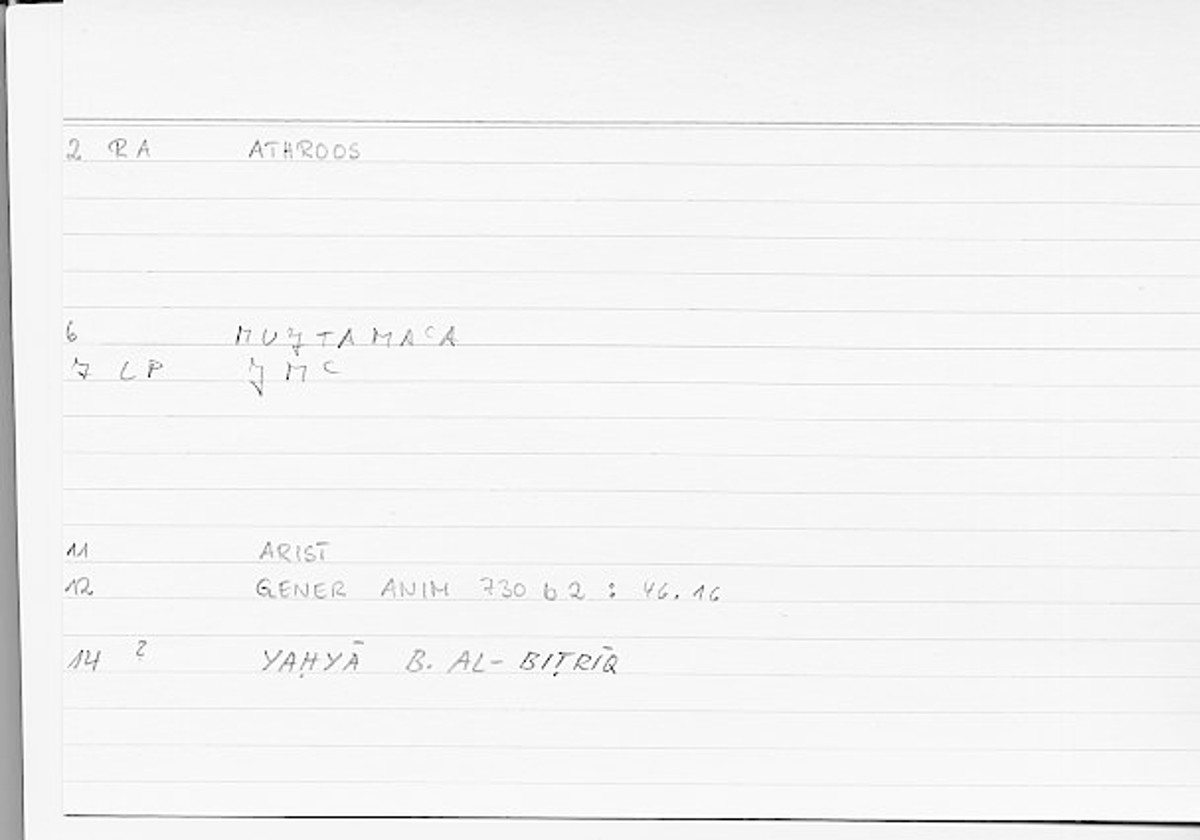 2 RA ATHROOS
6 MUǦTAMAʿA
7 LP ǦMʿ
11 ARIST
12 GENER ANIM 730 b 2 : 46.16
14 ? YAḤYĀ B. AL-BIṬRĪQ